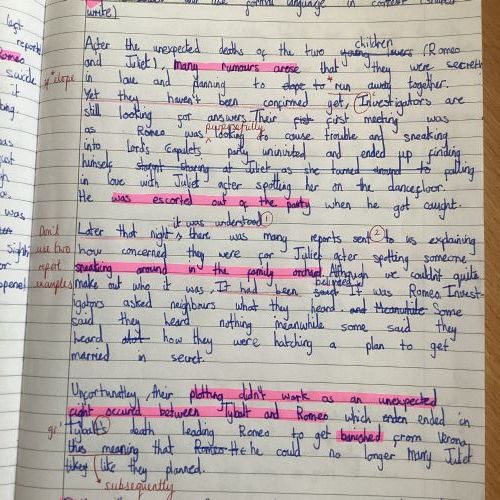 formal language in context
write)
After the unexpected deaths of the two young lovers children (Romeo
and Juliet), many rumours arose that they were secretly
in love and planning to elope to run away together.
Yet they haven't been confirmed yet, Investigators are
still looking for answers. Their fist first meeting was
as Romeo was purposefully looking to cause trouble and sneaking
into Lord Capulets party uninvited and ended up finding
himself staring at Juliet as she turned around to falling
in love with Juliet after spotting her on the dancefloor.
He was escorted out of the party when he got caught.
it was understood ①
Later that night, there was many reports sent ② to us explaining
how concerned they were for Juliet after spotting someone
sneaking around in the family orchard. Although we couldn't quite
make out who it was. It had been said believed It was Romeo. Invest-
igators asked neighbours what they heard. and Meanwhile Some
said they heard nothing meanwhile some said they
heard how they were hatching a plan to get
married in secret.
Unfortunatley, their plotting didn't work as an unexpected
fight occured between Tybalt and Romeo which ended in
Tybalt's death leading Romeo to get banished from Verona,
this meaning that Romeo he could no longer marry Juliet
like they planned.
subsequently
* elope
Don't
use two
report
examples
gr
left
reports
Romeo
suicide
it
was
that
was
sighti
or
opened